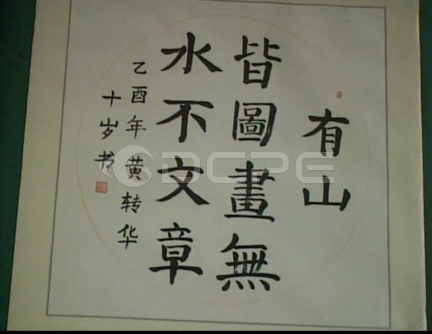 有山
皆圖畫無
水不文章
乙酉年黄转华
十岁书
PCPE